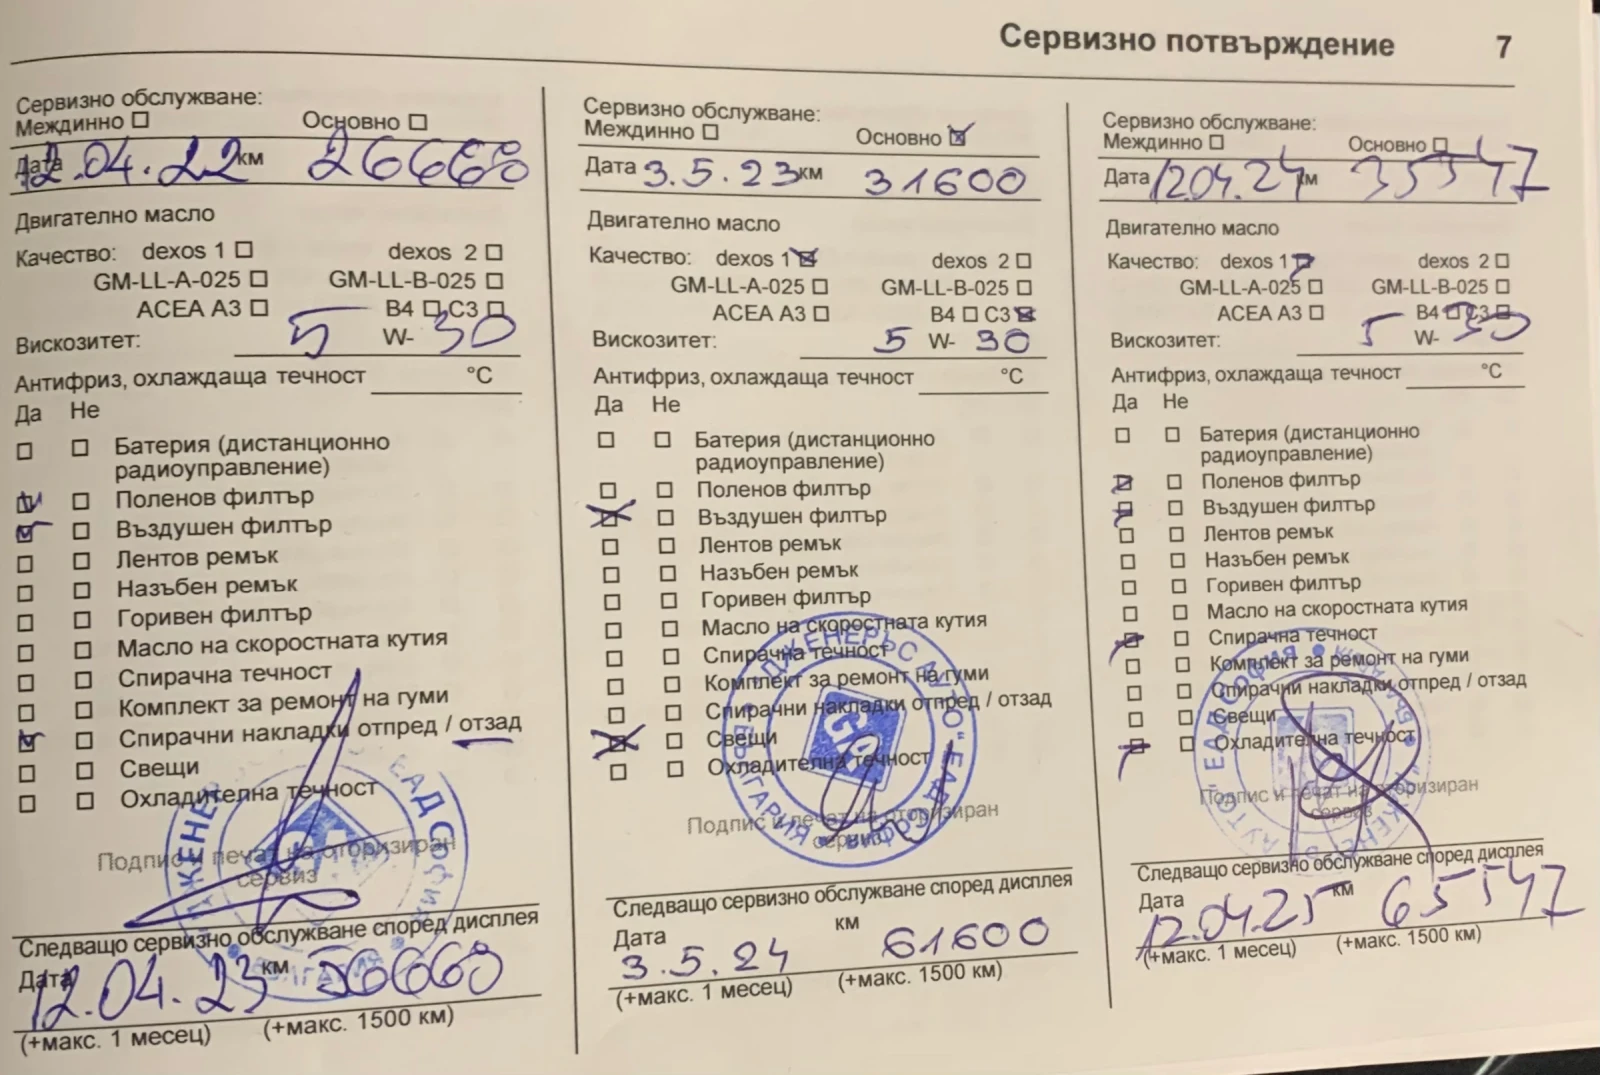 Сервизно потвърждение 7
Сервизно обслужване:
Междинно Основно
Дата 12.04.22 км 26668
Двигателно масло
Качество: dexos 1 dexos 2
GM-LL-A-025 GM-LL-B-025
ACEA A3 B4 C3
Вискозитет: 5 W- 30
Антифриз, охлаждаща течност °C
Да Не
Батерия (дистанционно
радиоуправление)
Поленов филтър
Въздушен филтър
Лентов ремък
Назъбен ремък
Горивен филтър
Масло на скоростната кутия
Спирачна течност
Комплект за ремонт на гуми
Спирачни накладки отпред / отзад
Свещи
Охладителна течност
Подпис и печат на оторизиран
сервиз
Следващо сервизно обслужване според дисплея
Дата 12.04.23 км 56668
(+макс. 1 месец) (+макс. 1500 км)
Сервизно обслужване:
Междинно Основно
Дата 3.5.23 км 31600
Двигателно масло
Качество: dexos 1 dexos 2
GM-LL-A-025 GM-LL-B-025
ACEA A3 B4 C3
Вискозитет: 5 W- 30
Антифриз, охлаждаща течност °C
Да Не
Батерия (дистанционно
радиоуправление)
Поленов филтър
Въздушен филтър
Лентов ремък
Назъбен ремък
Горивен филтър
Масло на скоростната кутия
Спирачна течност
Комплект за ремонт на гуми
Спирачни накладки отпред / отзад
Свещи
Охладителна течност
Подпис и печат на оторизиран
сервиз
Следващо сервизно обслужване според дисплея
Дата км
3.5.24 61600
(+макс. 1 месец) (+макс. 1500 км)
Сервизно обслужване:
Междинно Основно
Дата 12.04.24 км 35547
Двигателно масло
Качество: dexos 1 dexos 2
GM-LL-A-025 GM-LL-B-025
ACEA A3 B4 C3
Вискозитет: 5 W- 30
Антифриз, охлаждаща течност °C
Да Не
Батерия (дистанционно
радиоуправление)
Поленов филтър
Въздушен филтър
Лентов ремък
Назъбен ремък
Горивен филтър
Масло на скоростната кутия
Спирачна течност
Комплект за ремонт на гуми
Спирачни накладки отпред / отзад
Свещи
Охладителна течност
Подпис и печат на оторизиран
сервиз
Следващо сервизно обслужване според дисплея
Дата км
12.04.25 65547
(+макс. 1 месец) (+макс. 1500 км)